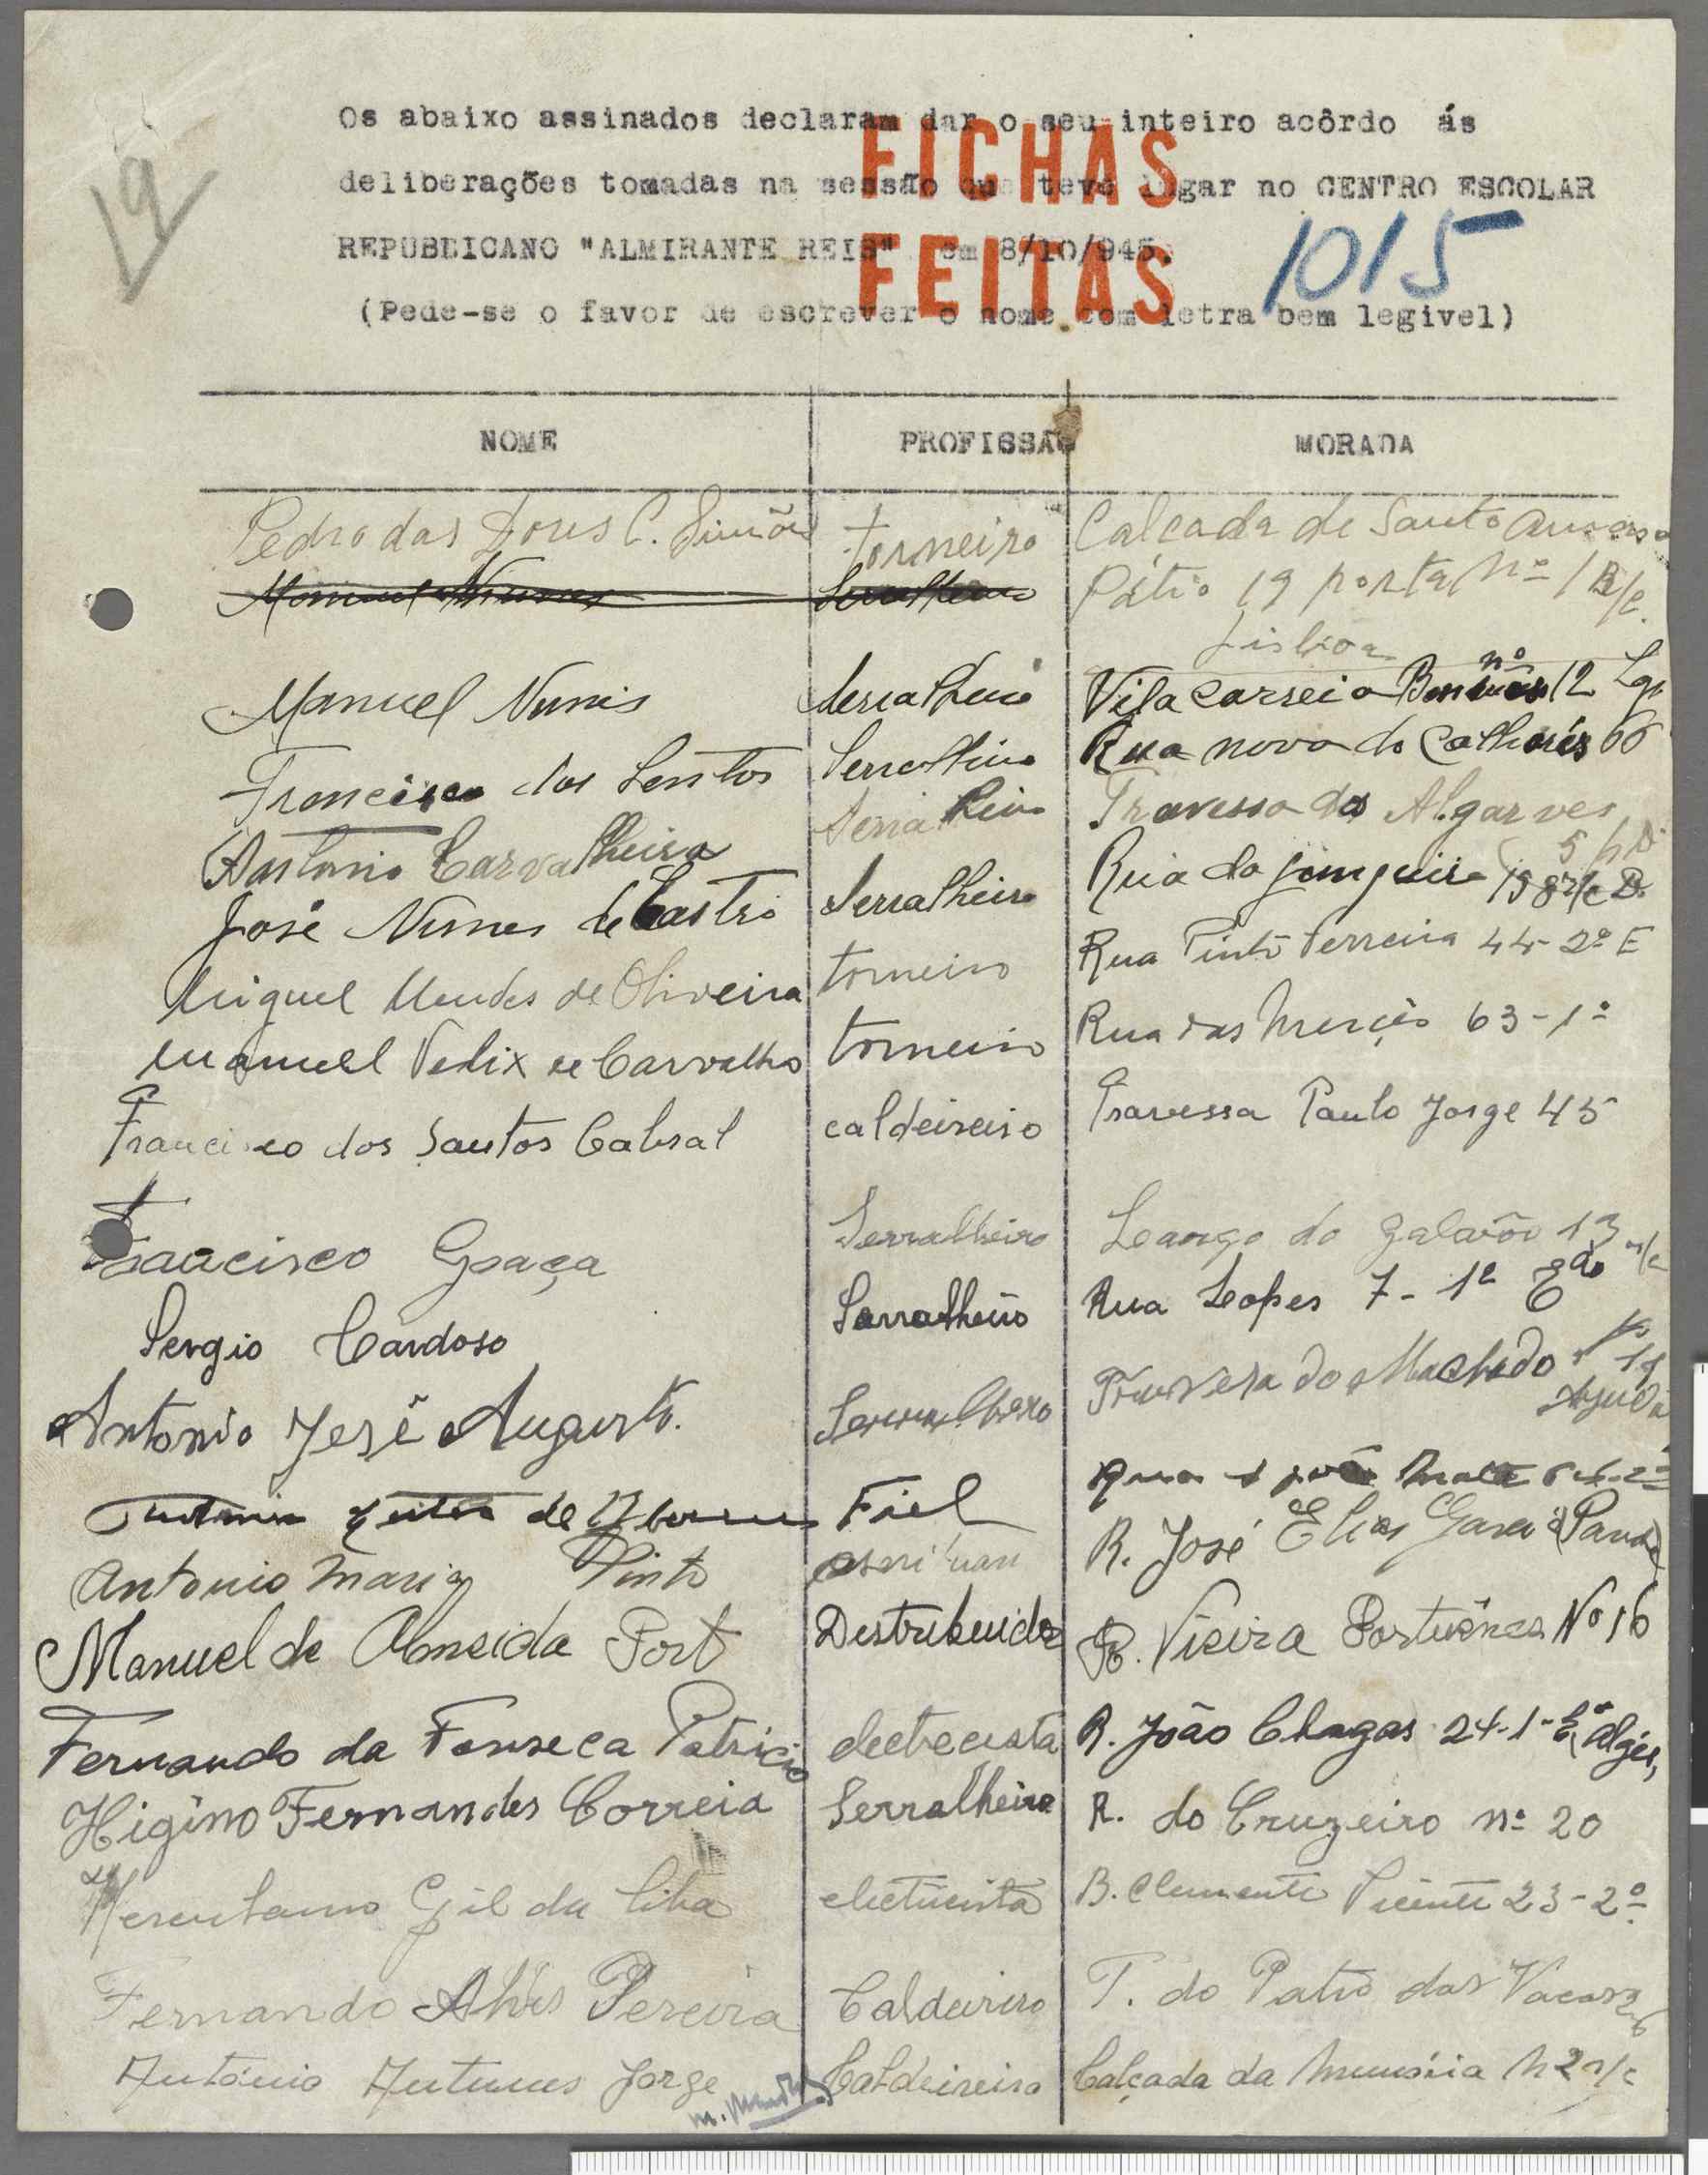 19
Os abaixo assinados declaram dar o seu inteiro acôrdo ás
deliberações tomadas na sessão que teve lugar no CENTRO ESCOLAR
REPUBLICANO "ALMIRANTE REIS" em 8/10/945.
(Pede-se o favor de escrever o nome com letra bem legivel)
FICHAS
FEITAS
1015
NOME PROFISSÃO MORADA
Pedro das Dores C. Simões torneiro Calçada de Santo Amaro
Manuel Nunes Serralheiro Pátio 19 porta nº 1 R/c.
Lisboa
Manuel Nunis Serralheiro Vila Correia nº 12
Francisco dos Santos Serralheiro Rua nova do Calhariz 66
Antonio Carvalheira Serralheiro Travessa das Algarves 5
José Nunes de Castro Serralheiro Rua da Junqueira 198 r/c D.
Miguel Mendes de Oliveira torneiro Rua Pinto Ferreira 44-2º E
Manuel Felix de Carvalho torneiro Rua das Mercês 63-1º
Francisco dos Santos Cabral caldeireiro Travessa Paulo Jorge 45
Francisco Graça Serralheiro Largo do Galvão 13 r/c
Sergio Cardoso Sarralheiro Rua Lopes 7-1º Edo
Antonio José Augusto. Serralheiro Travessa do Machado Nº 11 Ajuda
de Fiel Rua
Antonio Maria Pinto R. José Elias Garcia
Manuel de Almeida Port Destribuidor R. Vieira Portuense Nº 16
Fernando da Fonseca Patricio electrecista R. João Chagas 24-1-Eº Algés,
Higino Fernandes Correia Serralheiro R. do Cruzeiro nº 20
Herculano Gil da Silva electricista B. Clemente Vicente 23-2º
Fernando Alves Pereira Caldeireiro T. do Patio das Vacas
António Antunes Jorge Caldeireiro Calçada da Memória r/c